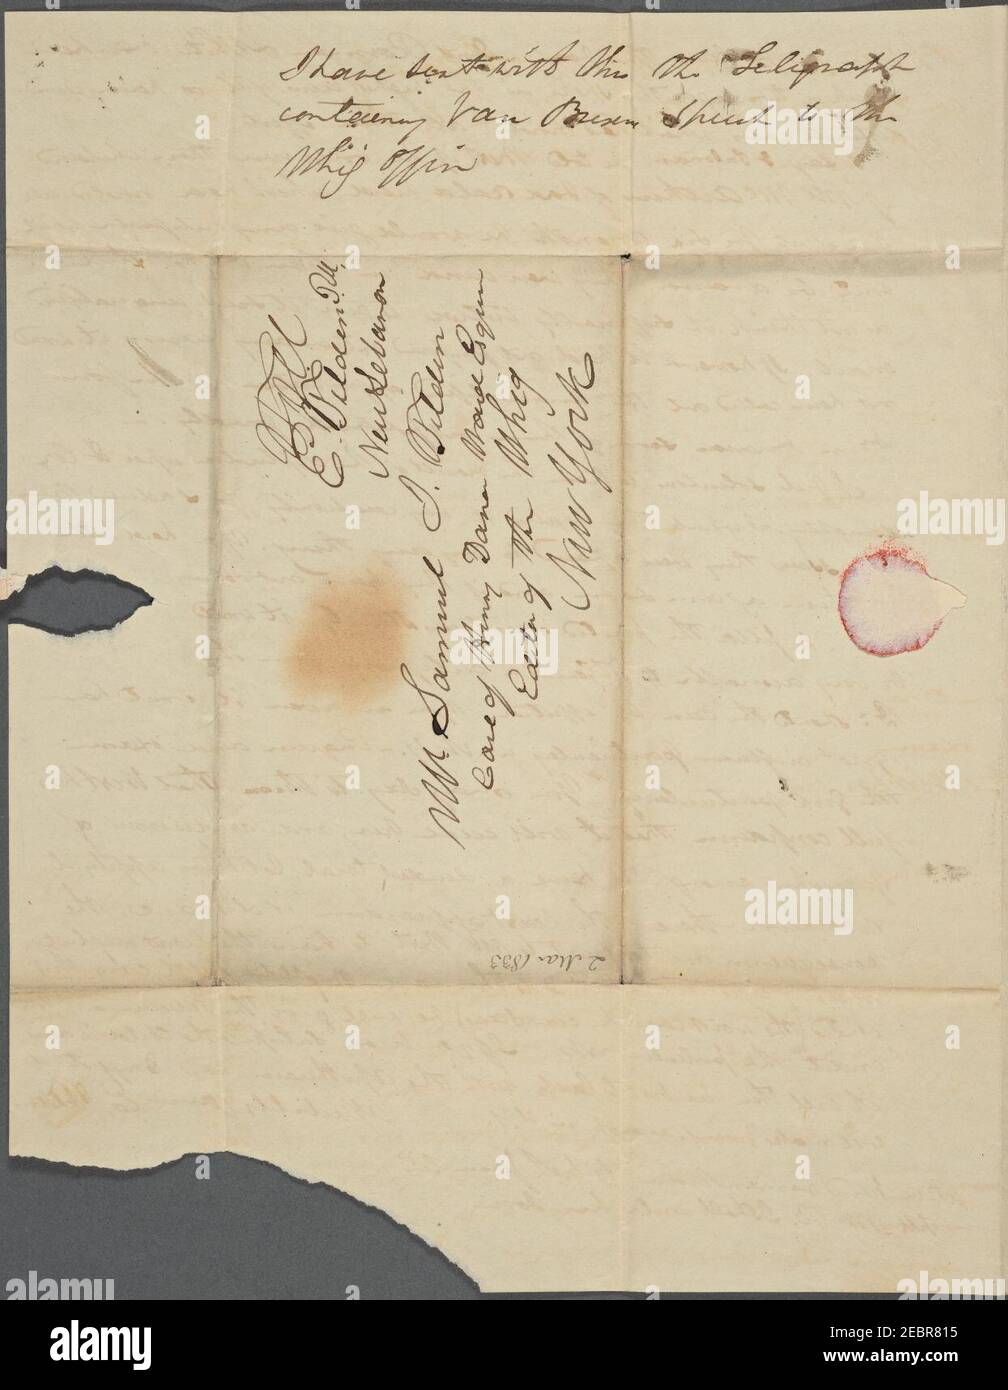 I have sent with this the Telegraph
containing Van Buren Speech to the
Whig office
Free
E. Tilden P.M.
New Lebanon
Mr Samuel J. Tilden
Care of Henry Dana Ward Esquire
Editor of the Whig
New York
2 Mar 1833
alamy
alamy
Image ID: 2EBR815
www.alamy.com